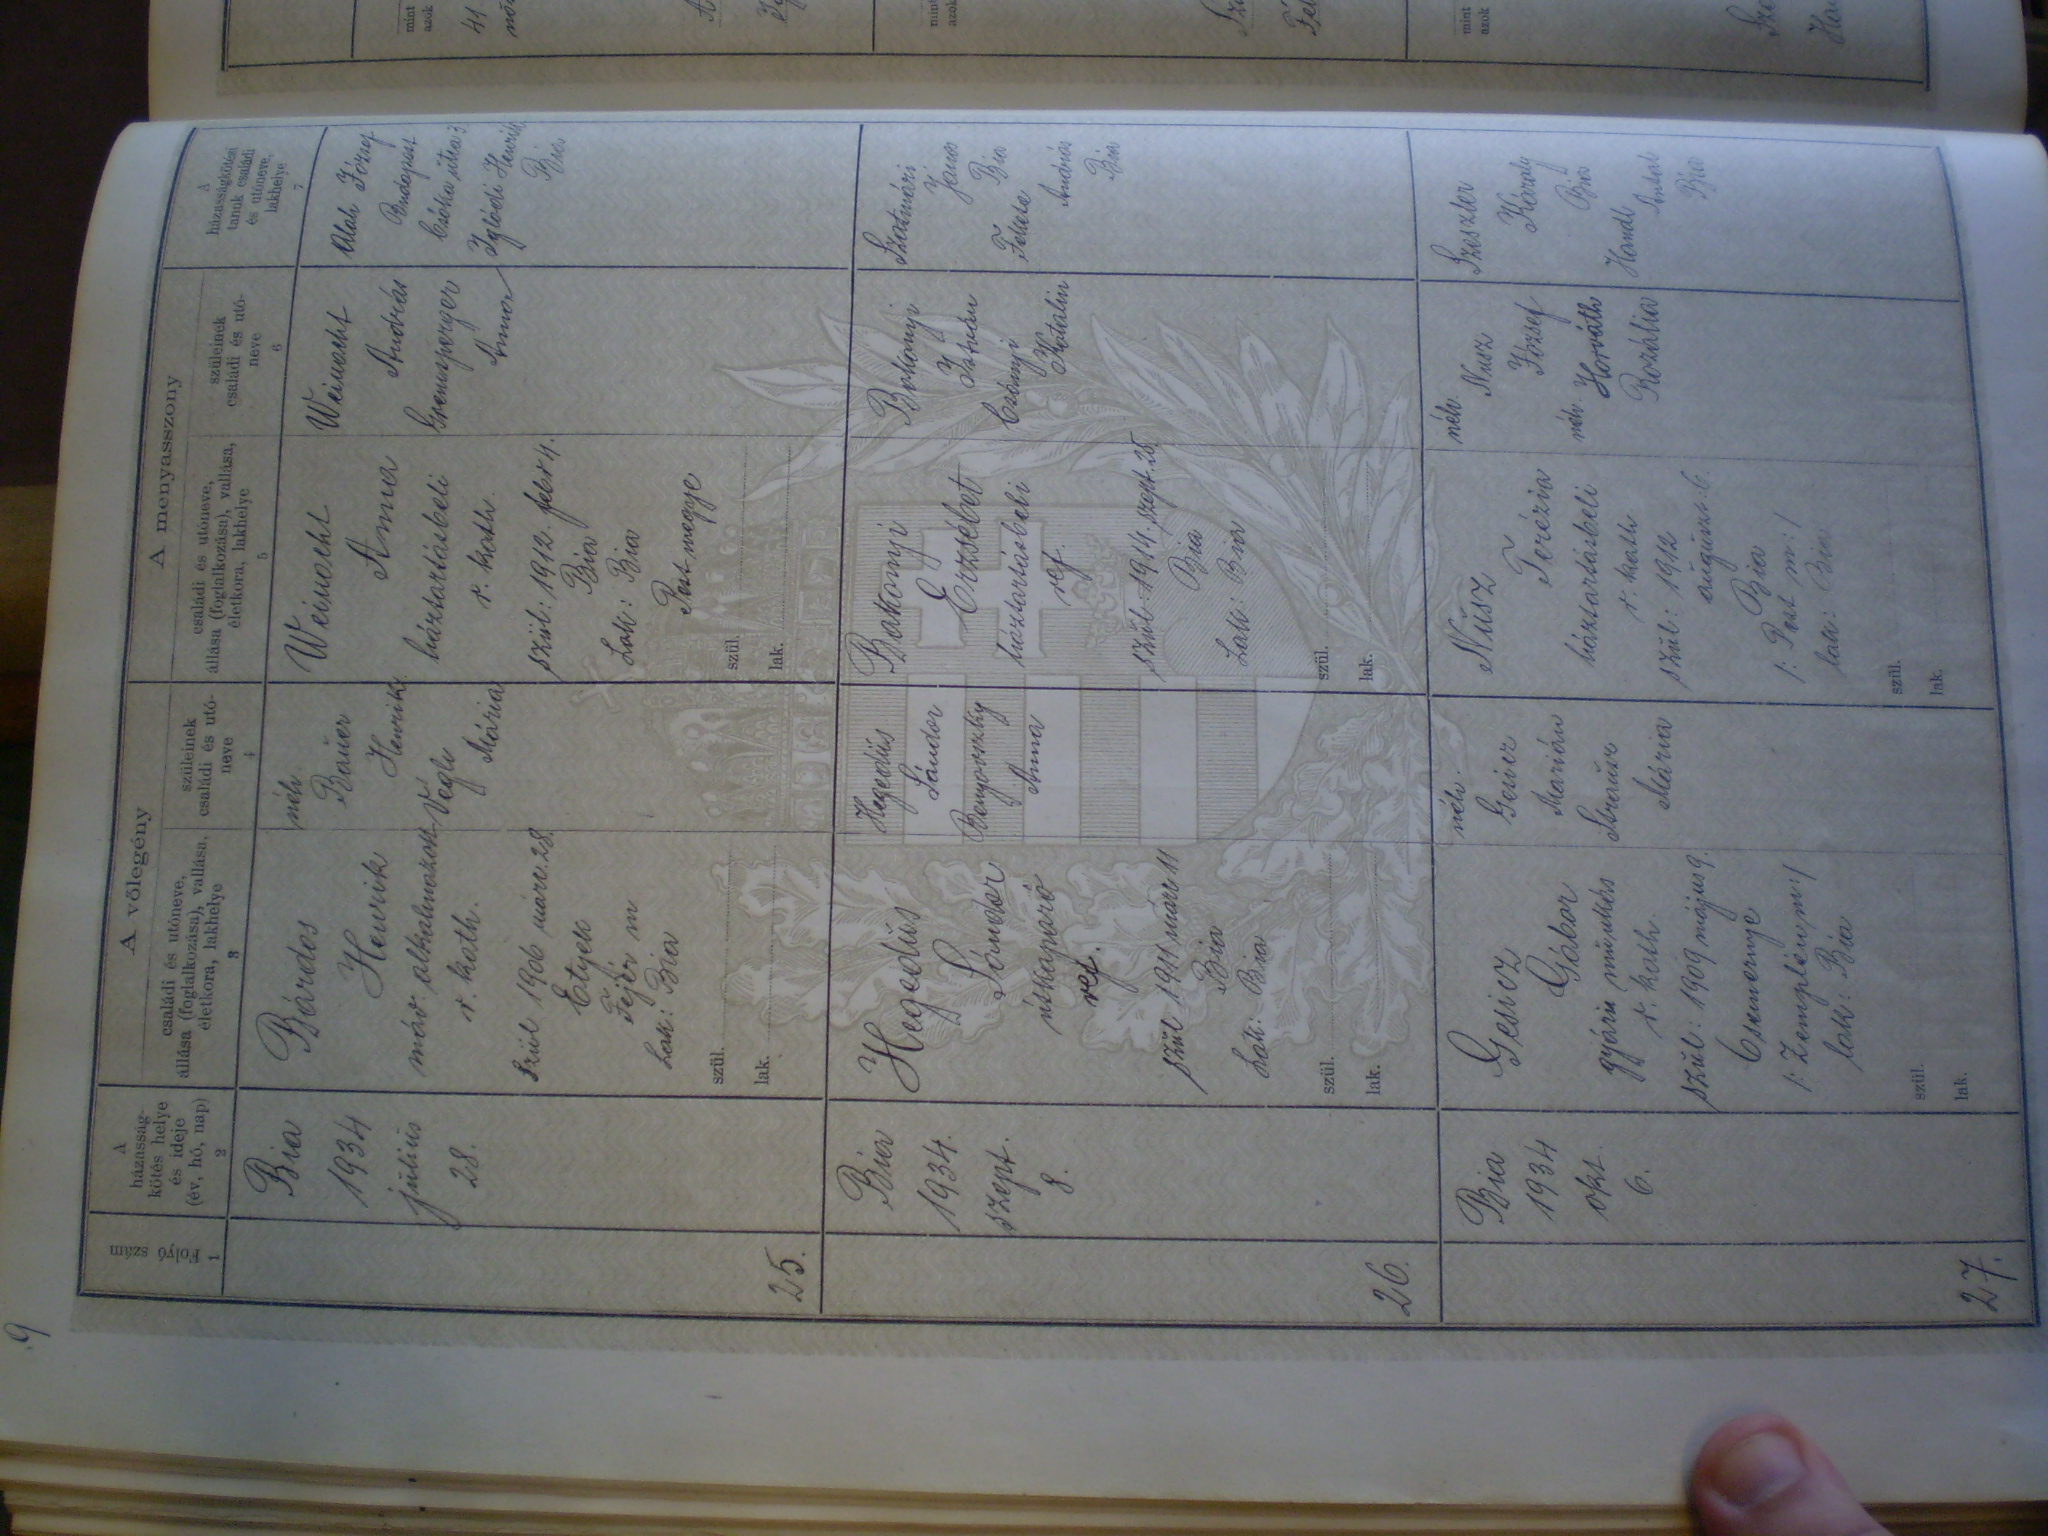 9
1
Folyó
szám
2
A
házasság-
kötés helye
és ideje
(év, hó, nap)
A vőlegény
3
családi és utóneve,
állása (foglalkozása), vallása,
életkora, lakhelye
4
szüleinek
családi és utó-
neve
A menyasszony
5
családi és utóneve,
állása (foglalkozása), vallása,
életkora, lakhelye
6
szüleinek
családi és utó-
neve
7
A
házasságkötési
tanuk családi
és utóneve,
lakhelye
25.
Bia
1934
július
28.
Bárdos
Henrik
máv. alkalmazott
r. kath.
Szül 1906 márc. 28.
Etyek
Fejér m
Lak: Bia
szül.
lak.
néh.
Bauer
Henrik
Végh
Mária
Weinacht
Anna
háztartásbeli
r. kath.
szül: 1912. febr 4.
Bia
Lak: Bia
Pest megye
szül.
lak.
Weinacht
András
Anna
József
Budapest
Csóka utca 3
Iglódi Henrik
Bia
26.
Bia
1934.
szept.
8.
Hegedűs
Sándor
útkaparó
ref.
szül 1911 márc 11
Bia
Lak: Bia
szül.
lak.
Hegedűs
Sándor
Benyovszky
Anna
Bakonyi
Erzsébet
háztartásbeli
ref.
szül: 1914. szept. 25.
Bia
Lak: Bia
szül.
lak.
Bakonyi
István
Csabanyi
Katalin
Szatmári
János
Bia
Fekete
András
Bia
27.
Bia
1934
okt.
6.
Gesicz
Gábor
gyári munkás
r. kath.
szül: 1909 május 9.
Csemernye
/: Zemplén m:/
lak: Bia
szül.
lak.
néh.
Gesicz
Marián
Mária
Nusz
Terézia
háztartásbeli
r. kath
szül: 1912
augusz. 6.
Bia
/: Pest m:/
lak: Bia
szül.
lak.
néh.
Nusz
József
néh.
Horváth
Rozália
Szeszler
Károly
Bia
Handl
Antal
Bia
mint
azok
41
mint
azok
mint
azok